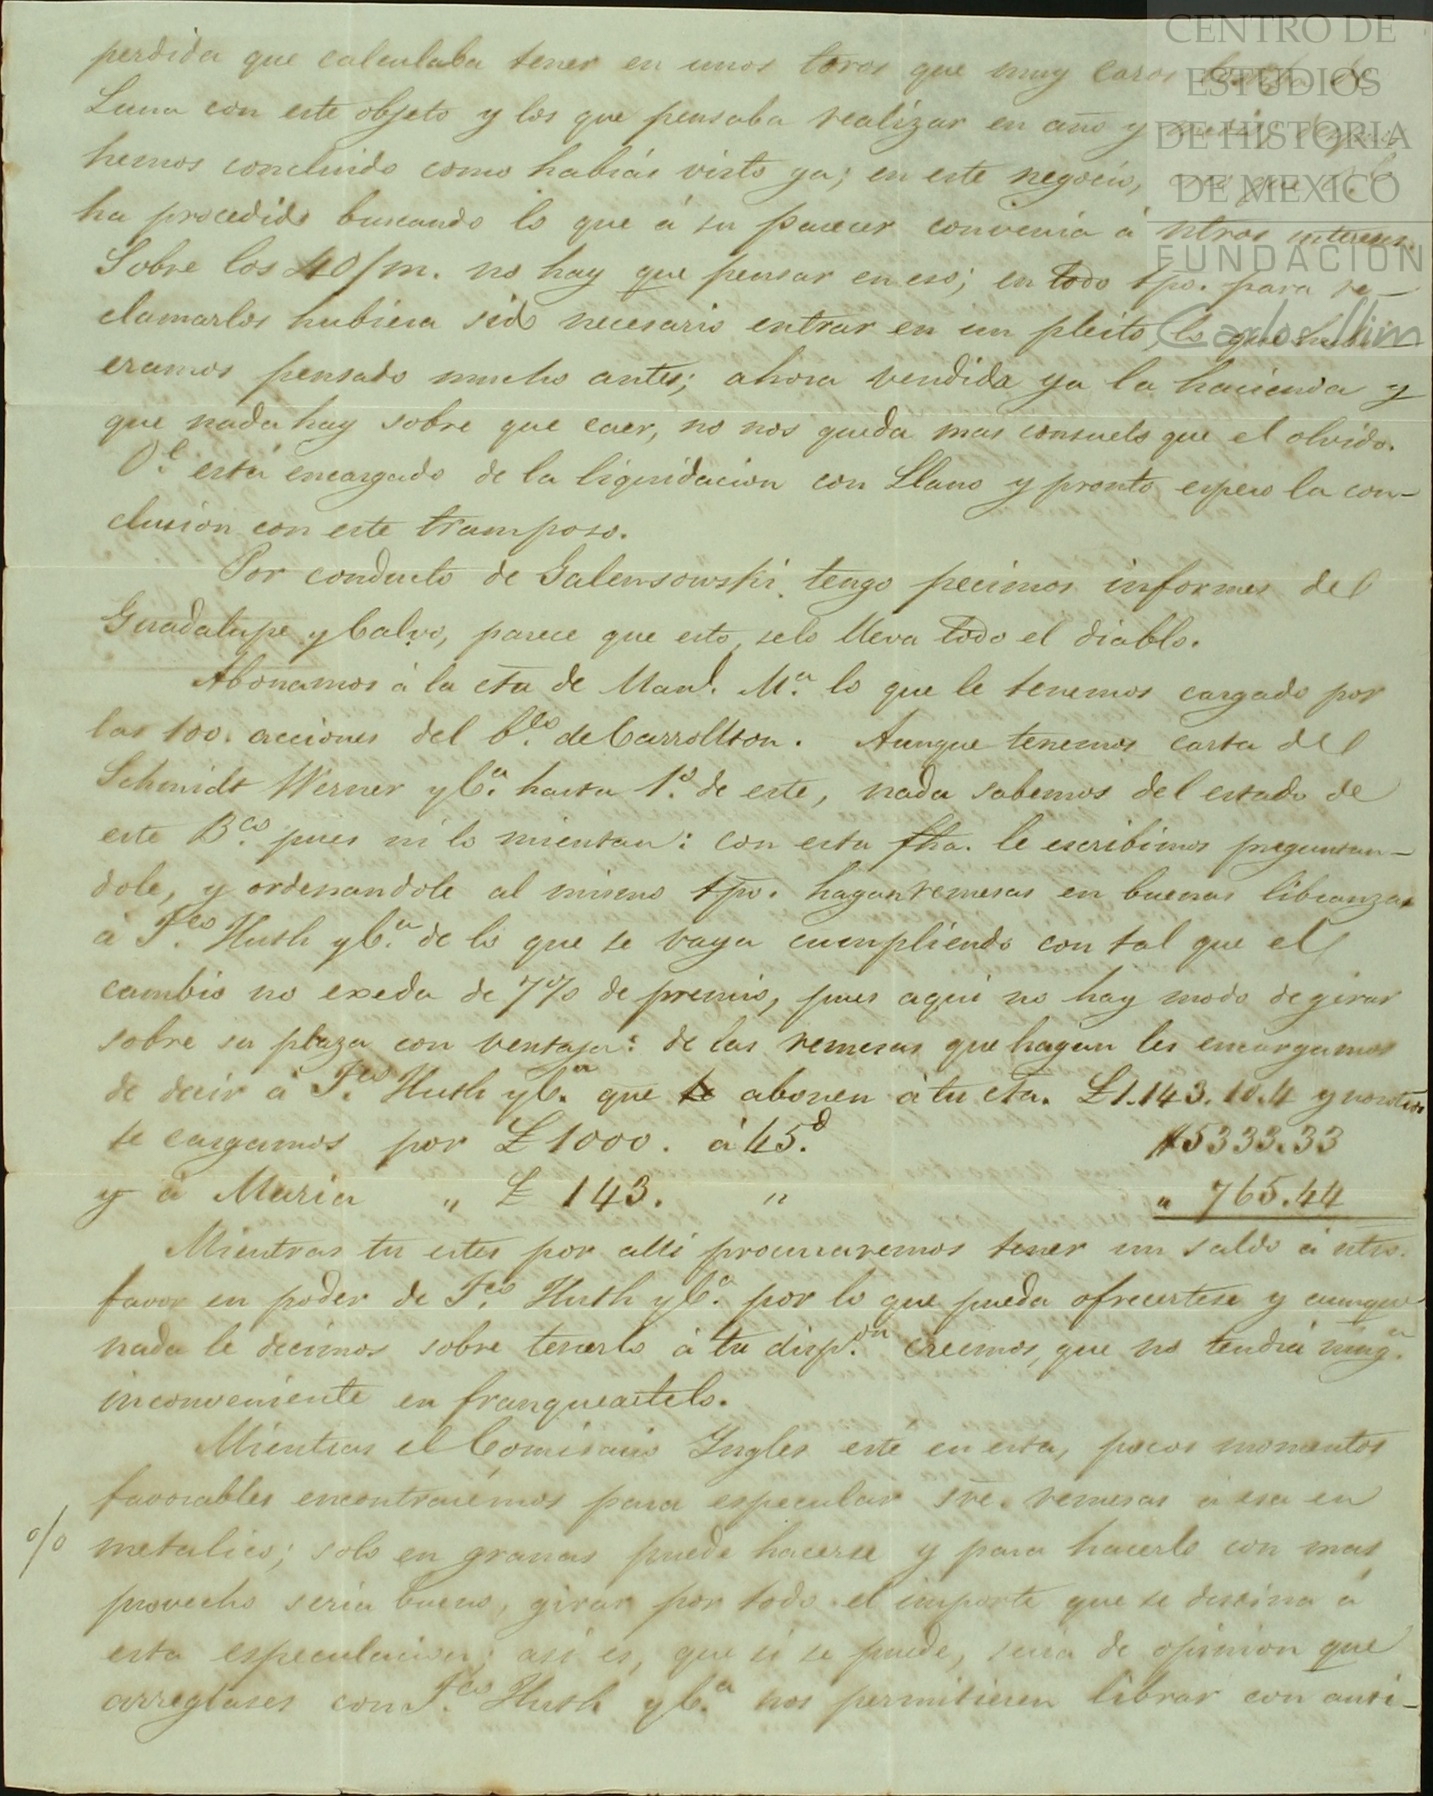 CENTRO DE
ESTUDIOS
DE HISTORIA
DE MEXICO
FUNDACIÓN
Carlos Slim
perdida que calculaba tener en unos toros que muy caros
Luna con este objeto y los que pensaba realizar en año y
hemos concluido como habías visto ya; en este negocio,
ha procedido buscando lo que á su parecer convenia á ntros intereses.
Sobre los 40/m. no hay que pensar en eso; en todo tpo. para re-
clamarlos hubiera sido necesario entrar en un pleito, lo que hubi-
eramos pensado mucho antes; ahora vendida ya la hacienda y
que nada hay sobre que caer, no nos queda mas consuelo que el olvido.
O.l está encargado de la liquidacion con Llano y pronto espero la con-
clusion con este tramposo.
Por conducto de Galensowski tengo pecimos informes del
Guadalupe y Calvo, parece que esto selo lleva todo el diablo.
Abonamos á la cta de Manl. Ma. lo que le tenemos cargado por
las 100. acciones del Bco. de Carrollton. Aunque tenemos carta de
Schmidt Werner y Ca. hasta 1o. de este, nada sabemos del estado de
este Bco. pues ni lo mientan: con esta fha. le escribimos preguntan-
dole, y ordenandole al mismo tpo. hagan remesas en buenas libranzas
á Fco. Huth y Ca. de lo que se vaya cumpliendo con tal que el
cambio no exeda de 7% de premio, pues aqui no hay modo de girar
sobre su plaza con ventaja: de las remesas que hagan les encargamos
de decir á Fco. Huth y Ca. que te abonen á tu cta. £1.143.10.4 y nosotros
te cargamos por £1000. á 45.d $5333.33
y á Maria " £ 143. " " 765.44
Mientras tu estés por alli procuraremos tener un saldo á ntro.
favor en poder de Fco. Huth y Ca. por lo que pueda ofrecertese y aunque
nada le decimos sobre tenerlo á tu dispon. creemos, que no tendrá ninga.
inconveniente en franqueartelo.
Mientras el Comisario Ingles esté en esta, pocos momentos
favorables encontrarémos para especular sre. remesas á esa en
% metalico; solo en granas puede hacerse y para hacerlo con mas
provecho seria bueno, girar por todo el importe que se destina á
esta especulacion; asi es, que si se puede, seria de opinion que
arreglases con Fco. Huth y Ca. nos permitiesen librar con anti-